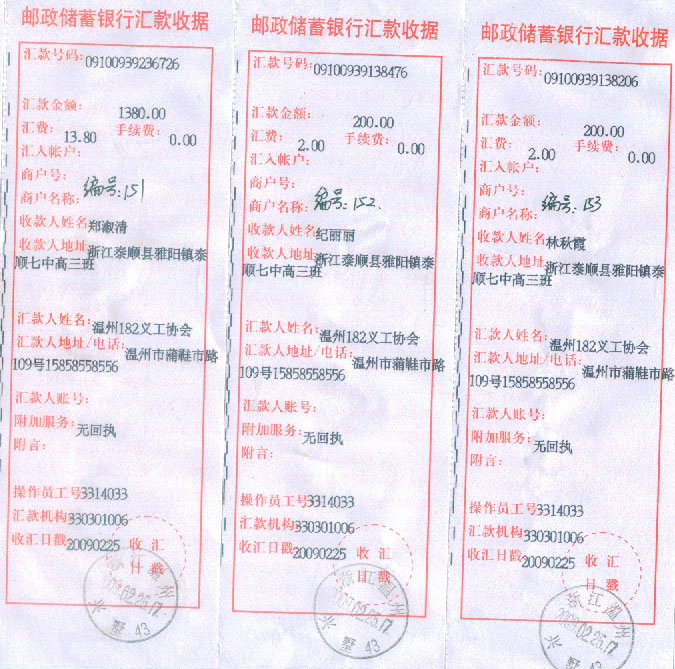 邮政储蓄银行汇款收据
汇款号码:09100939236726
汇款金额: 1380.00
汇费: 13.80 手续费: 0.00
汇入帐户:
商户号:
编号:151
商户名称:
收款人姓名郑淑清
收款人地址浙江泰顺县雅阳镇泰
顺七中高三班
汇款人姓名:温州182义工协会
汇款人地址/电话:温州市蒲鞋市路
109号15858558556
汇款人账号:
附加服务:无回执
附言:
操作员工号3314033
汇款机构330301006
收汇日戳20090225
收汇
日戳
浙江温州
2009.02.25.17
43
邮政储蓄银行汇款收据
汇款号码:09100939138476
汇款金额: 200.00
汇费: 2.00 手续费: 0.00
汇入帐户:
商户号:
商户名称: 编号:152.
收款人姓名纪丽丽
收款人地址浙江泰顺县雅阳镇泰
顺七中高三班
汇款人姓名:温州182义工协会
汇款人地址/电话:温州市蒲鞋市路
109号15858558556
汇款人账号:
附加服务:无回执
附言:
操作员工号3314033
汇款机构330301006
收汇日戳20090225
收汇
日戳
浙江温州
43
邮政储蓄银行汇款收据
汇款号码:09100939138206
汇款金额: 200.00
汇费: 2.00 手续费: 0.00
汇入帐户:
商户号:
商户名称: 编号:153
收款人姓名林秋霞
收款人地址浙江泰顺县雅阳镇泰
顺七中高三班
汇款人姓名:温州182义工协会
汇款人地址/电话:温州市蒲鞋市路
109号15858558556
汇款人账号:
附加服务:无回执
附言:
操作员工号3314033
汇款机构330301006
收汇日戳20090225
收汇
日戳
浙江温州
2009.02.25.17
43